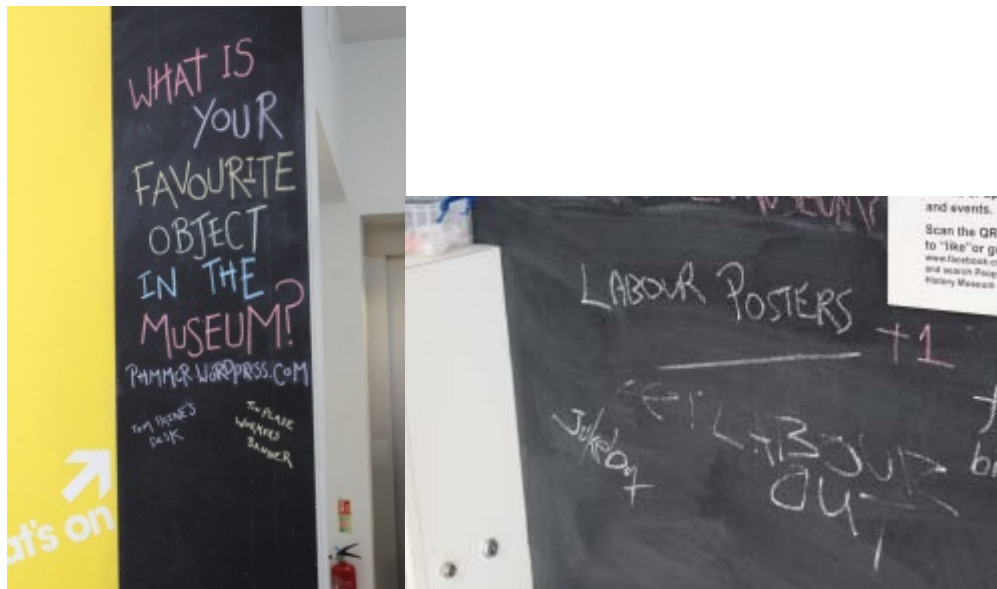 WHAT IS
YOUR
FAVOURITE
OBJECT
IN THE
MUSEUM?
PHMMCR.WORDPRESS.COM
TOM PAINE'S
DESK
TIN PLATE
WORKERS
BANNER
at's on
MUSEUM?
and events.
Scan the QR
to "like" or g
www.facebook.c
and search Peop
History Museum
LABOUR POSTERS
+1
LABOUR
OUT
Jukebox